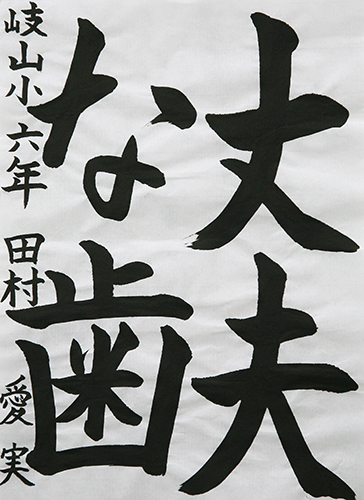 丈夫
な歯
岐山小六年 田村 愛実